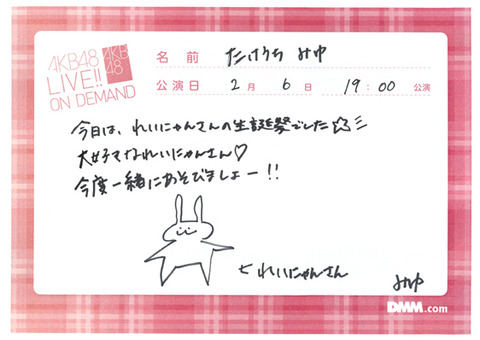 AKB48
LIVE!!
ON DEMAND
AKB
48
名前 たけうち みゆ
公演日 2月 6日 19:00 公演
今日は、れいにゃんさんの生誕祭でした☆彡
大好きなれいにゃんさん♡
今度一緒にあそびましょー!!
←れいにゃんさん
みゆ
DMM.com